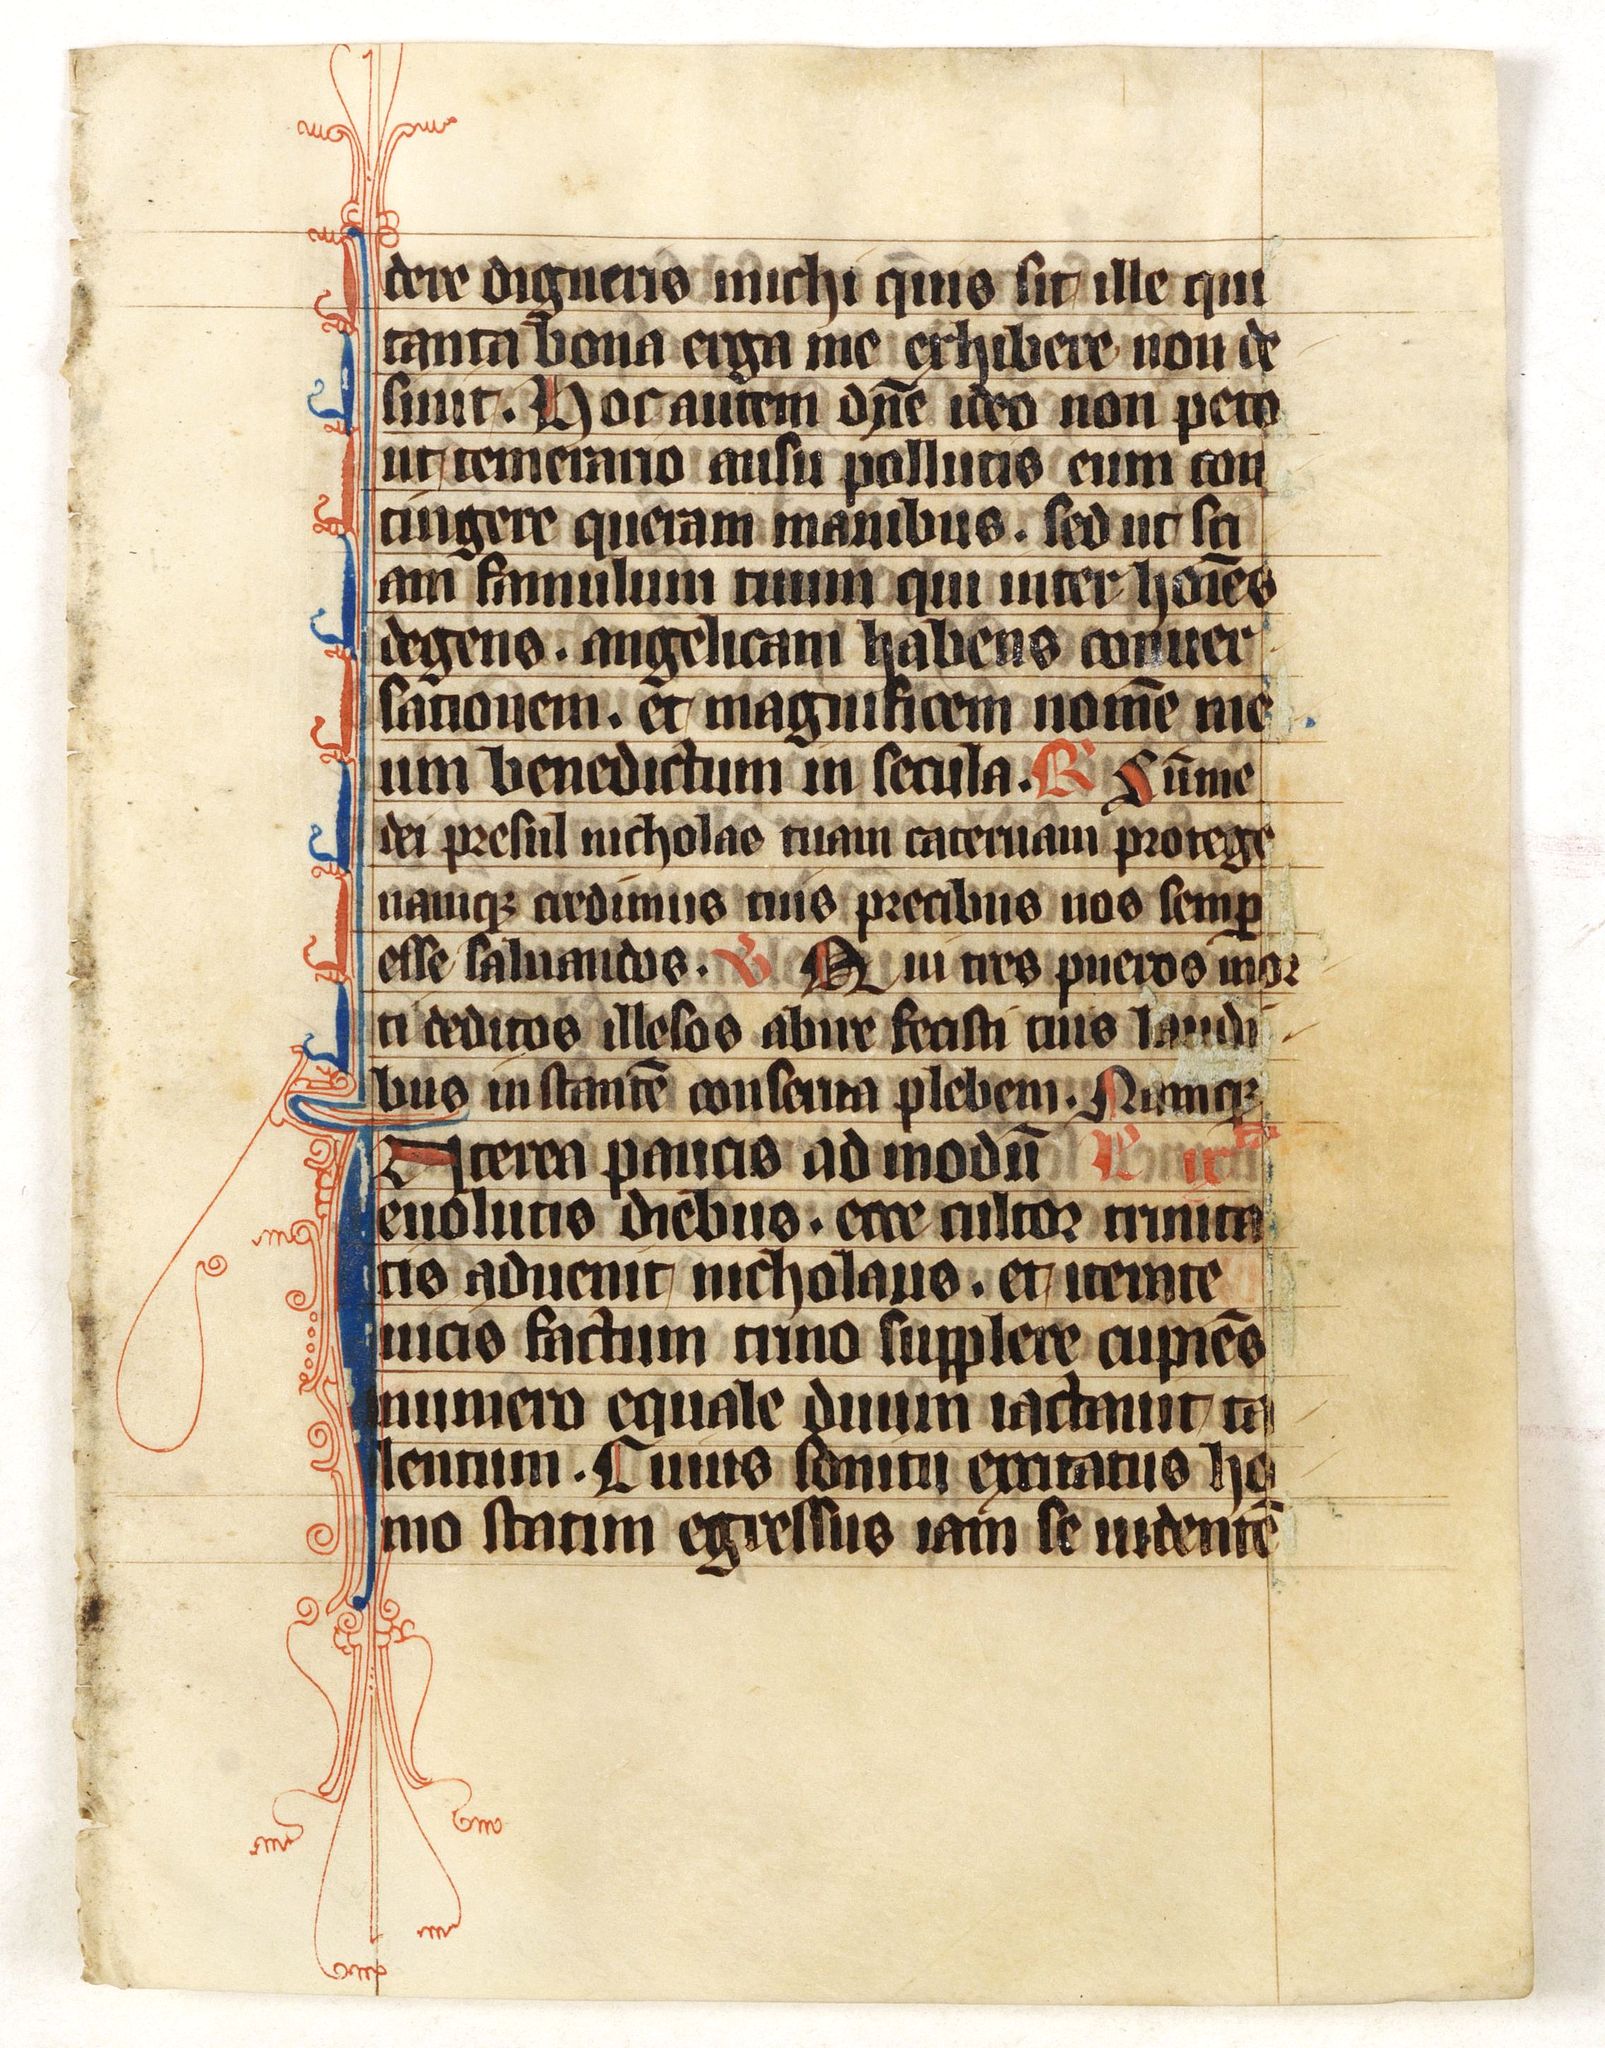 dere digneris michi q̄nis sit ille qui
tanta bona erga me exhibere non de
sinit. Hoc autem dn̄e ideo non peto
ut temerario ausu pollutis eum con
tingere queram manibus. sed ut sci
am famulum tuum qui inter hōīes
degens. angelicam habens conuer
sationem. et magnificem nomē me
um benedictum in secula. R Sūme
dei presul nicholae tuam cateruam protege
namqꝫ credimus tuis precibus nos semꝑ
esse saluandos. V Qui tres pueros mor
ti deditos illesos abire fecisti tuis laudi
bus instantē conserua plebem. Namqꝫ
Interea paucis ad modū
euolutis diebus. ecce cultor trinita
tis aduenit nicholaus. et iterate
uicis factum trino supplere cupiēs
numero equale diuum iactauit ta
lentum. Cuius sonitu excitatus ho
mo statim egressus iam se uidentē